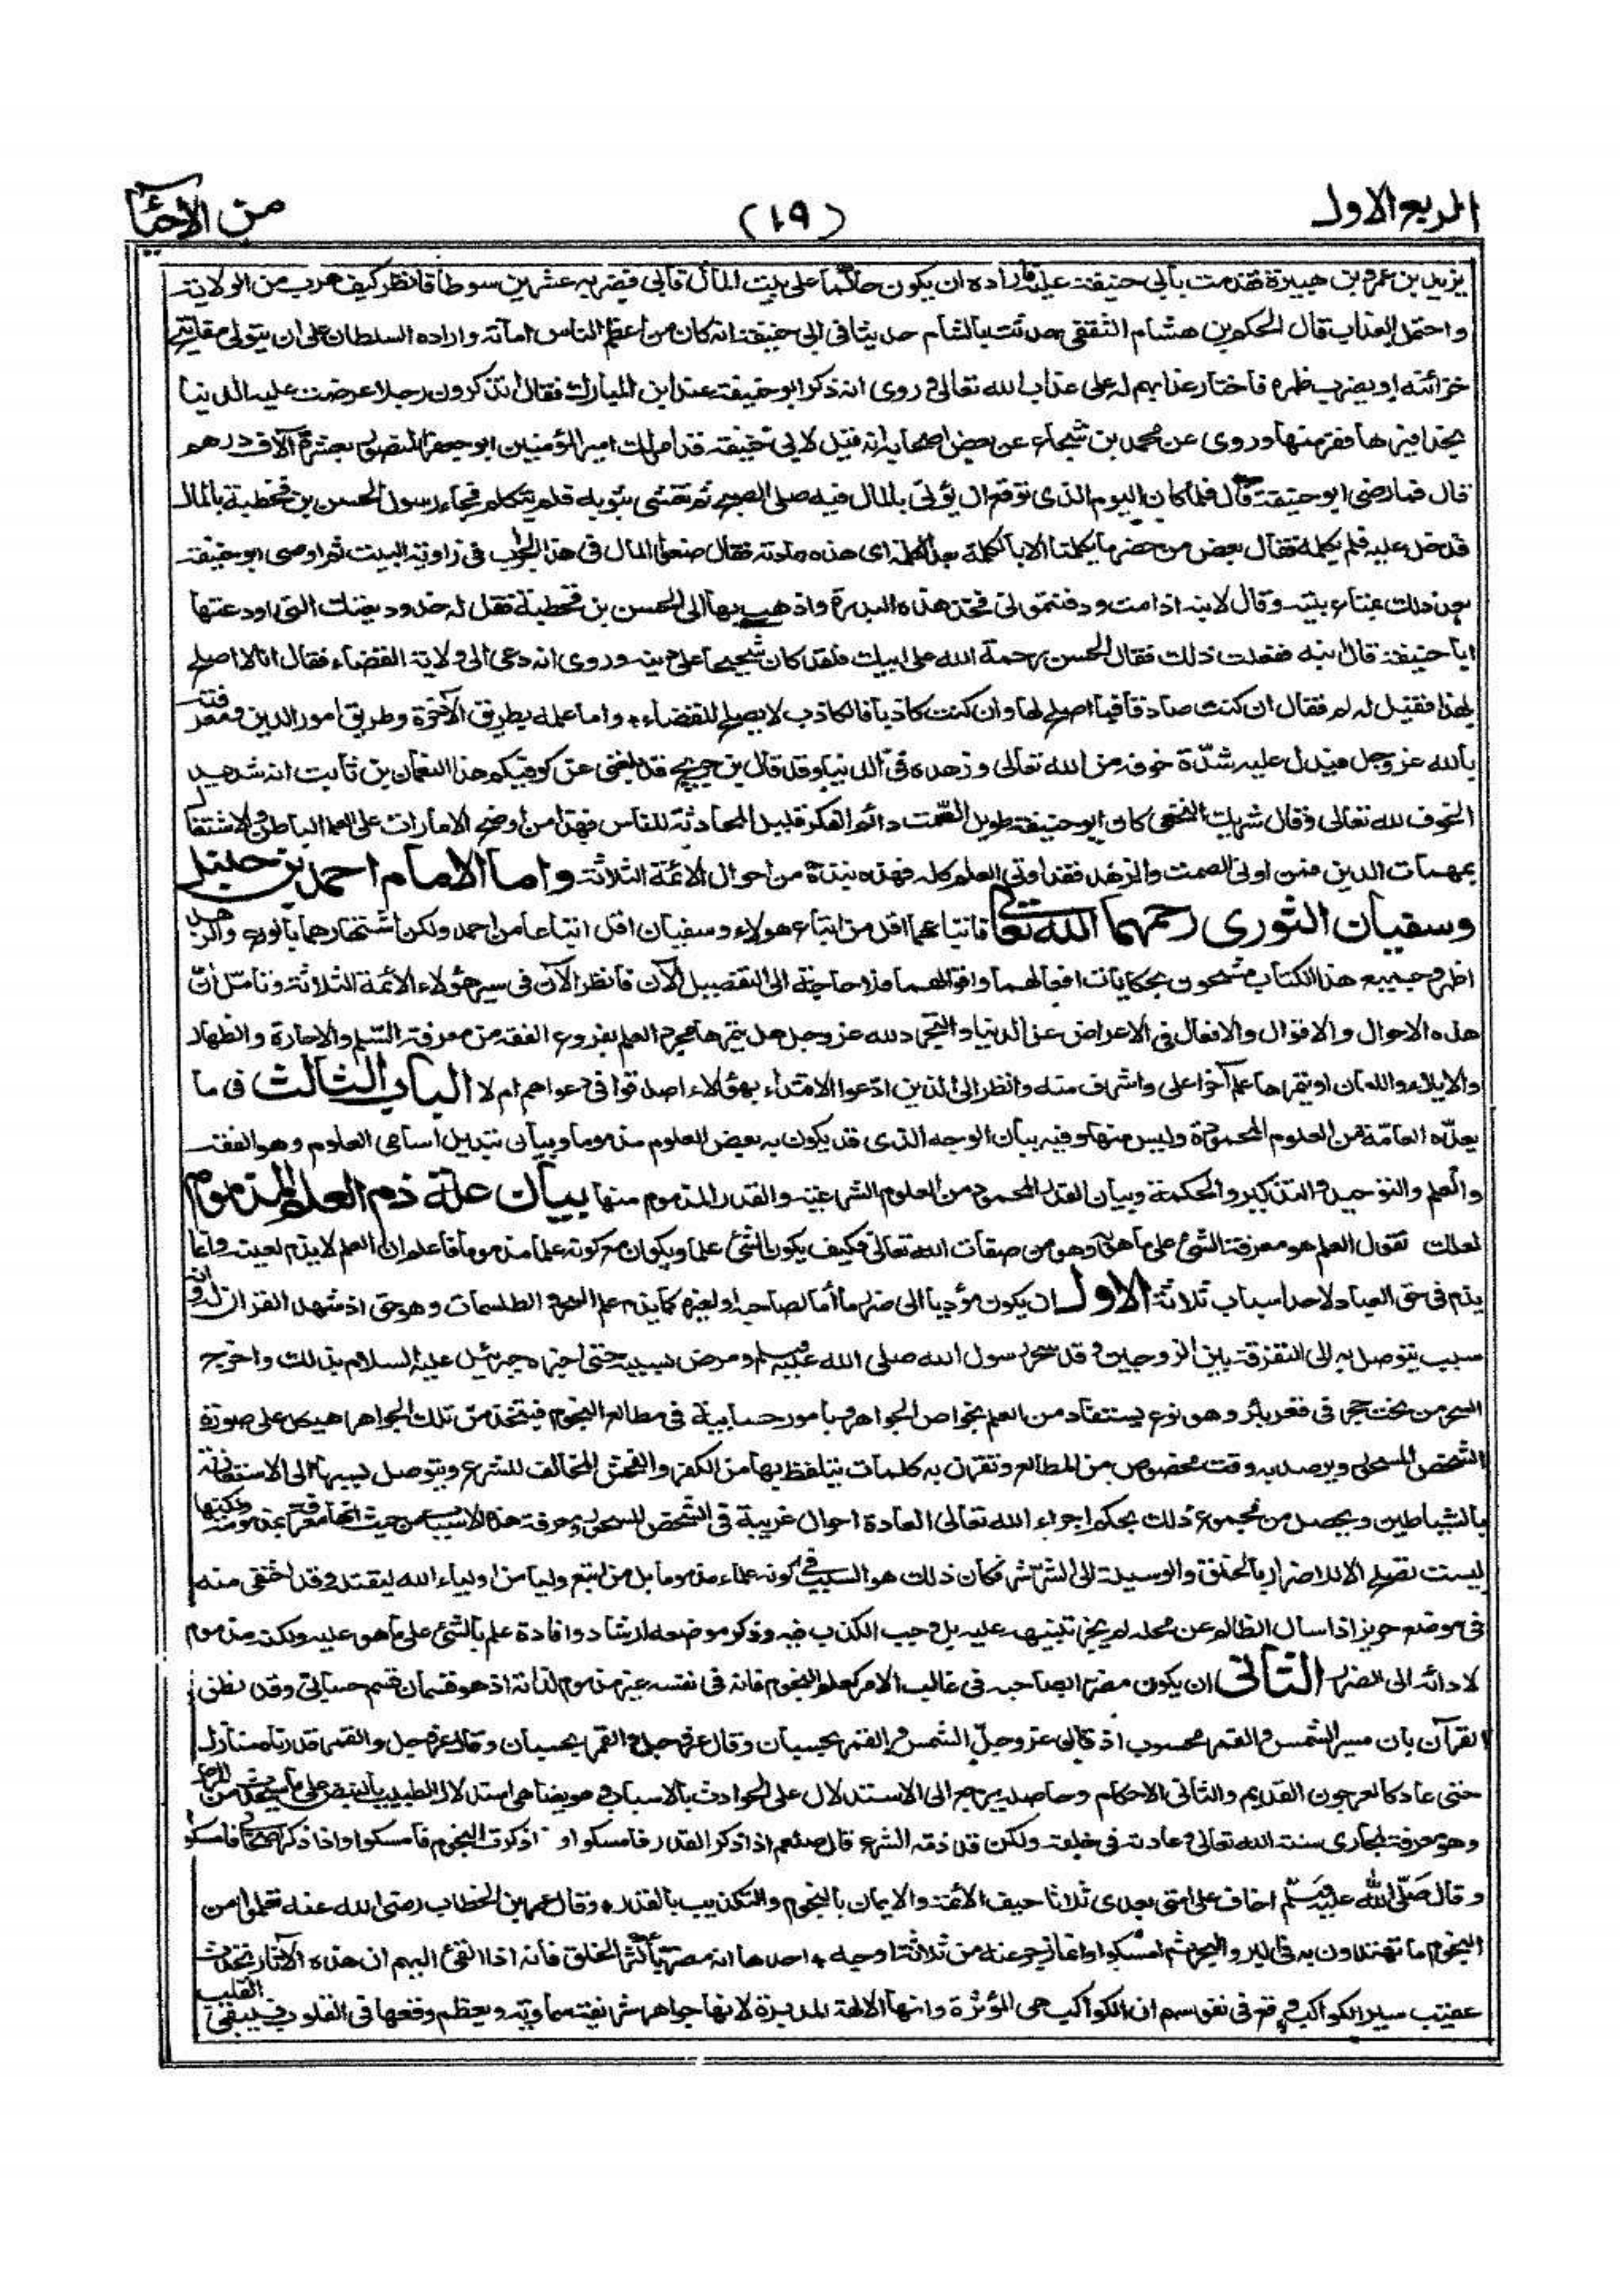 الربع الاول
(١٩)
من الأحياء
يزيد بن عمر بن هبيرة فقدمت بأبي حنيفة عليه فاراده ان يكون حاكما على بيت المال فأبى فضربه عشرين سوطا فانظر كيف هرب من الولاية
واحتمل العذاب قال الحكم بن هشام الثقفي حدثت بالشام حديثا في ابي حنيفة انه كان من اعظم الناس امانة واراده السلطان على ان يتولى مفاتيح
خزائنه او يضرب ظهره فاختار عذابهم له على عذاب الله تعالى وروى انه ذكر ابو حنيفة عند ابن المبارك فقال أتذكرون رجلا عرضت عليه الدنيا
بحذافيرها ففر منها وروى عن محمد بن شجاع عن بعض اصحابه انه قيل لابي حنيفة قد امر لك امير المؤمنين ابو جعفر المنصور بعشرة آلاف درهم
قال فما رضى ابو حنيفة قال فلما كان اليوم الذى توقع ان يؤتى بالمال فيه صلى الصبح ثم تغشى بثوبه فلم يتكلم فجاء رسول الحسن بن قحطبة بالمال
فدخل عليه فلم يكلمه فقال بعض من حضر ما يكلمنا الا بالكلمة بعد الكلمة اى هذه عادته فقال ضعوا المال في هذا الجراب في زاوية البيت ثم اوصى ابو حنيفة
بعد ذلك بمتاع بيته وقال لابنه اذا مت ودفنتموني فخذ هذه البدرة واذهب بها الى الحسن بن قحطبة فقل له خذ وديعتك التي اودعتها
ابا حنيفة قال ابنه ففعلت ذلك فقال الحسن رحمة الله على ابيك فلقد كان شحيحا على دينه وروى انه دعى الى ولاية القضاء فقال انا لا اصلح
لهذا فقيل له لم فقال ان كنت صادقا فما اصلح لها وان كنت كاذبا فالكاذب لا يصلح للقضاء* واما علمه بطريق الآخرة وطريق امور الدين ومعرفته
بالله عز وجل فيدل عليه شدّة خوفه من الله تعالى وزهده في الدنيا وقد قال ابن جريج قد بلغنى عن كوفيكم هذا النعمان بن ثابت انه شديد
الخوف لله تعالى وقال شريك النخعى كان ابو حنيفة طويل الصمت دائم الفكر قليل المحادثة للناس فهذا من أوضح الامارات على العلم الباطن والاشتغال
بمهمات الدين فمن اوتى الصمت والزهد فقد اوتى العلم كله فهذه نبذة من احوال الائمة الثلاثة واما الامام احمد بن حنبل
وسفيان الثورى رحمهما الله تعالى فاتباعهما اقل من اتباع هؤلاء وسفيان اقل اتباعا من احمد ولكن اشتهارهما بالورع والزهد
اظهر وجميع هذا الكتاب مشحون بحكايات افعالهما واقوالهما فلا حاجة الى التفصيل الآن فانظر الآن في سير هؤلاء الأئمة الثلاثة وتأمل أنّ
هذه الاحوال والاقوال والافعال في الاعراض عن الدنيا والتجرد لله عز وجل هل يثمرها مجرد العلم بفروع الفقه من معرفة السّلم والاجارة والظهار
والايلاء واللعان او يثمرها علم آخر اعلى واشرف منه وانظر الى الذين ادّعوا الاقتداء بهؤلاء اصدقوا في دعواهم ام لا الباب الثالث فى ما
يعدّه العامّة من العلوم المحمودة وليس منها وفيه بيان الوجه الذى قد يكون به بعض العلوم مذموما وبيان تبديل اسامى العلوم وهو الفقه
والعلم والتوحيد والتذكير والحكمة وبيان القدر المحمود من العلوم الشرعية والقدر المذموم منها بيان علة ذم العلم المذموم
لعلك تقول العلم هو معرفة الشئ على ما هو به وهو من صفات الله تعالى فكيف يكون الشئ علما ويكون مع كونه علما مذموما فاعلم ان العلم لا يذم لعينه وانما
يذم في حق العباد لاحد اسباب ثلاثة الاول ان يكون مؤديا الى ضرر ما أما لصاحبه او لغيره كما يذم علم السحر والطلسمات وهو حق اذ شهد القرآن له وانه
سبب يتوصل به الى التفرقة بين الزوجين وقد سحر رسول الله صلى الله عليه وسلم ومرض بسببه حتى اخبره جبرئيل عليه السلام بذلك واخرج
السحر من تحت حجر في قعر بئر وهو نوع يستفاد من العلم بخواص الجواهر وبامور حسابية في مطالع النجوم فيتخذ من تلك الجواهر هيكل على صورة
الشخص المسحور ويرصد به وقت مخصوص من المطالع وتقرن به كلمات يتلفظ بها من الكفر والفحش المخالف للشرع ويتوصل بسببها الى الاستعانة
بالشياطين ويحصل من مجموع ذلك بحكم اجراء الله تعالى العادة احوال غريبة في الشخص المسحور ومعرفة هذه الاسباب من حيث انها معرفة ليست مذمومة ولكنها
ليست تصلح الا للاضرار بالخلق والوسيلة الى الشر شر فكان ذلك هو السبب في كونه علما مذموما بل من اتبع وليا من اولياء الله ليقتله وقد اختفى منه
في موضع حريز اذا سال الظالم عن محله لم يجز تنبيهه عليه بل وجب الكذب فيه وذكر موضعه ارشاد وافادة علم بالشئ على ما هو عليه ولكنه مذموم
لادائه الى الضرر الثاني ان يكون مضرا بصاحبه في غالب الامر كعلم النجوم فانه في نفسه غير مذموم لذاته اذ هو قسمان قسم حسابي وقد نطق
القرآن بان مسير الشمس والقمر محسوب اذ قال عز وجلّ الشمس والقمر بحسبان وقال عز وجل والقمر قدرناه منازل
حتى عاد كالعرجون القديم والثاني الاحكام وحاصله يرجع الى الاستدلال على الحوادث بالاسباب وهو يضاهى استدلال الطبيب بالنبض على ما سيحدث من المرض
وهو معرفة لمجارى سنة الله تعالى وعادته في خلقه ولكن قد ذمه الشرع قال صلعم اذا ذكر القدر فامسكوا واذا ذكرت النجوم فأمسكوا واذا ذكر اصحابى فامسكوا
وقال صَلّى الله عليه وسلّم اخاف على امتى بعدى ثلاثا حيف الائمة والايمان بالنجوم والتكذيب بالقدر* وقال عمر بن الخطاب رضى الله عنه تعلموا من
النجوم ما تهتدون به في البر والبحر ثم امسكوا وانما زجر عنه من ثلاثة اوجه* احدها انه مضر بأكثر الخلق فانه اذا القى اليهم ان هذه الآثار تحدث
عقيب سير الكواكب وقع في نفوسهم ان الكواكب هي المؤثرة وانها الالهة المدبرة لانها جواهر شريفة سماوية ويعظم وقعها في القلوب فيبقى القلب